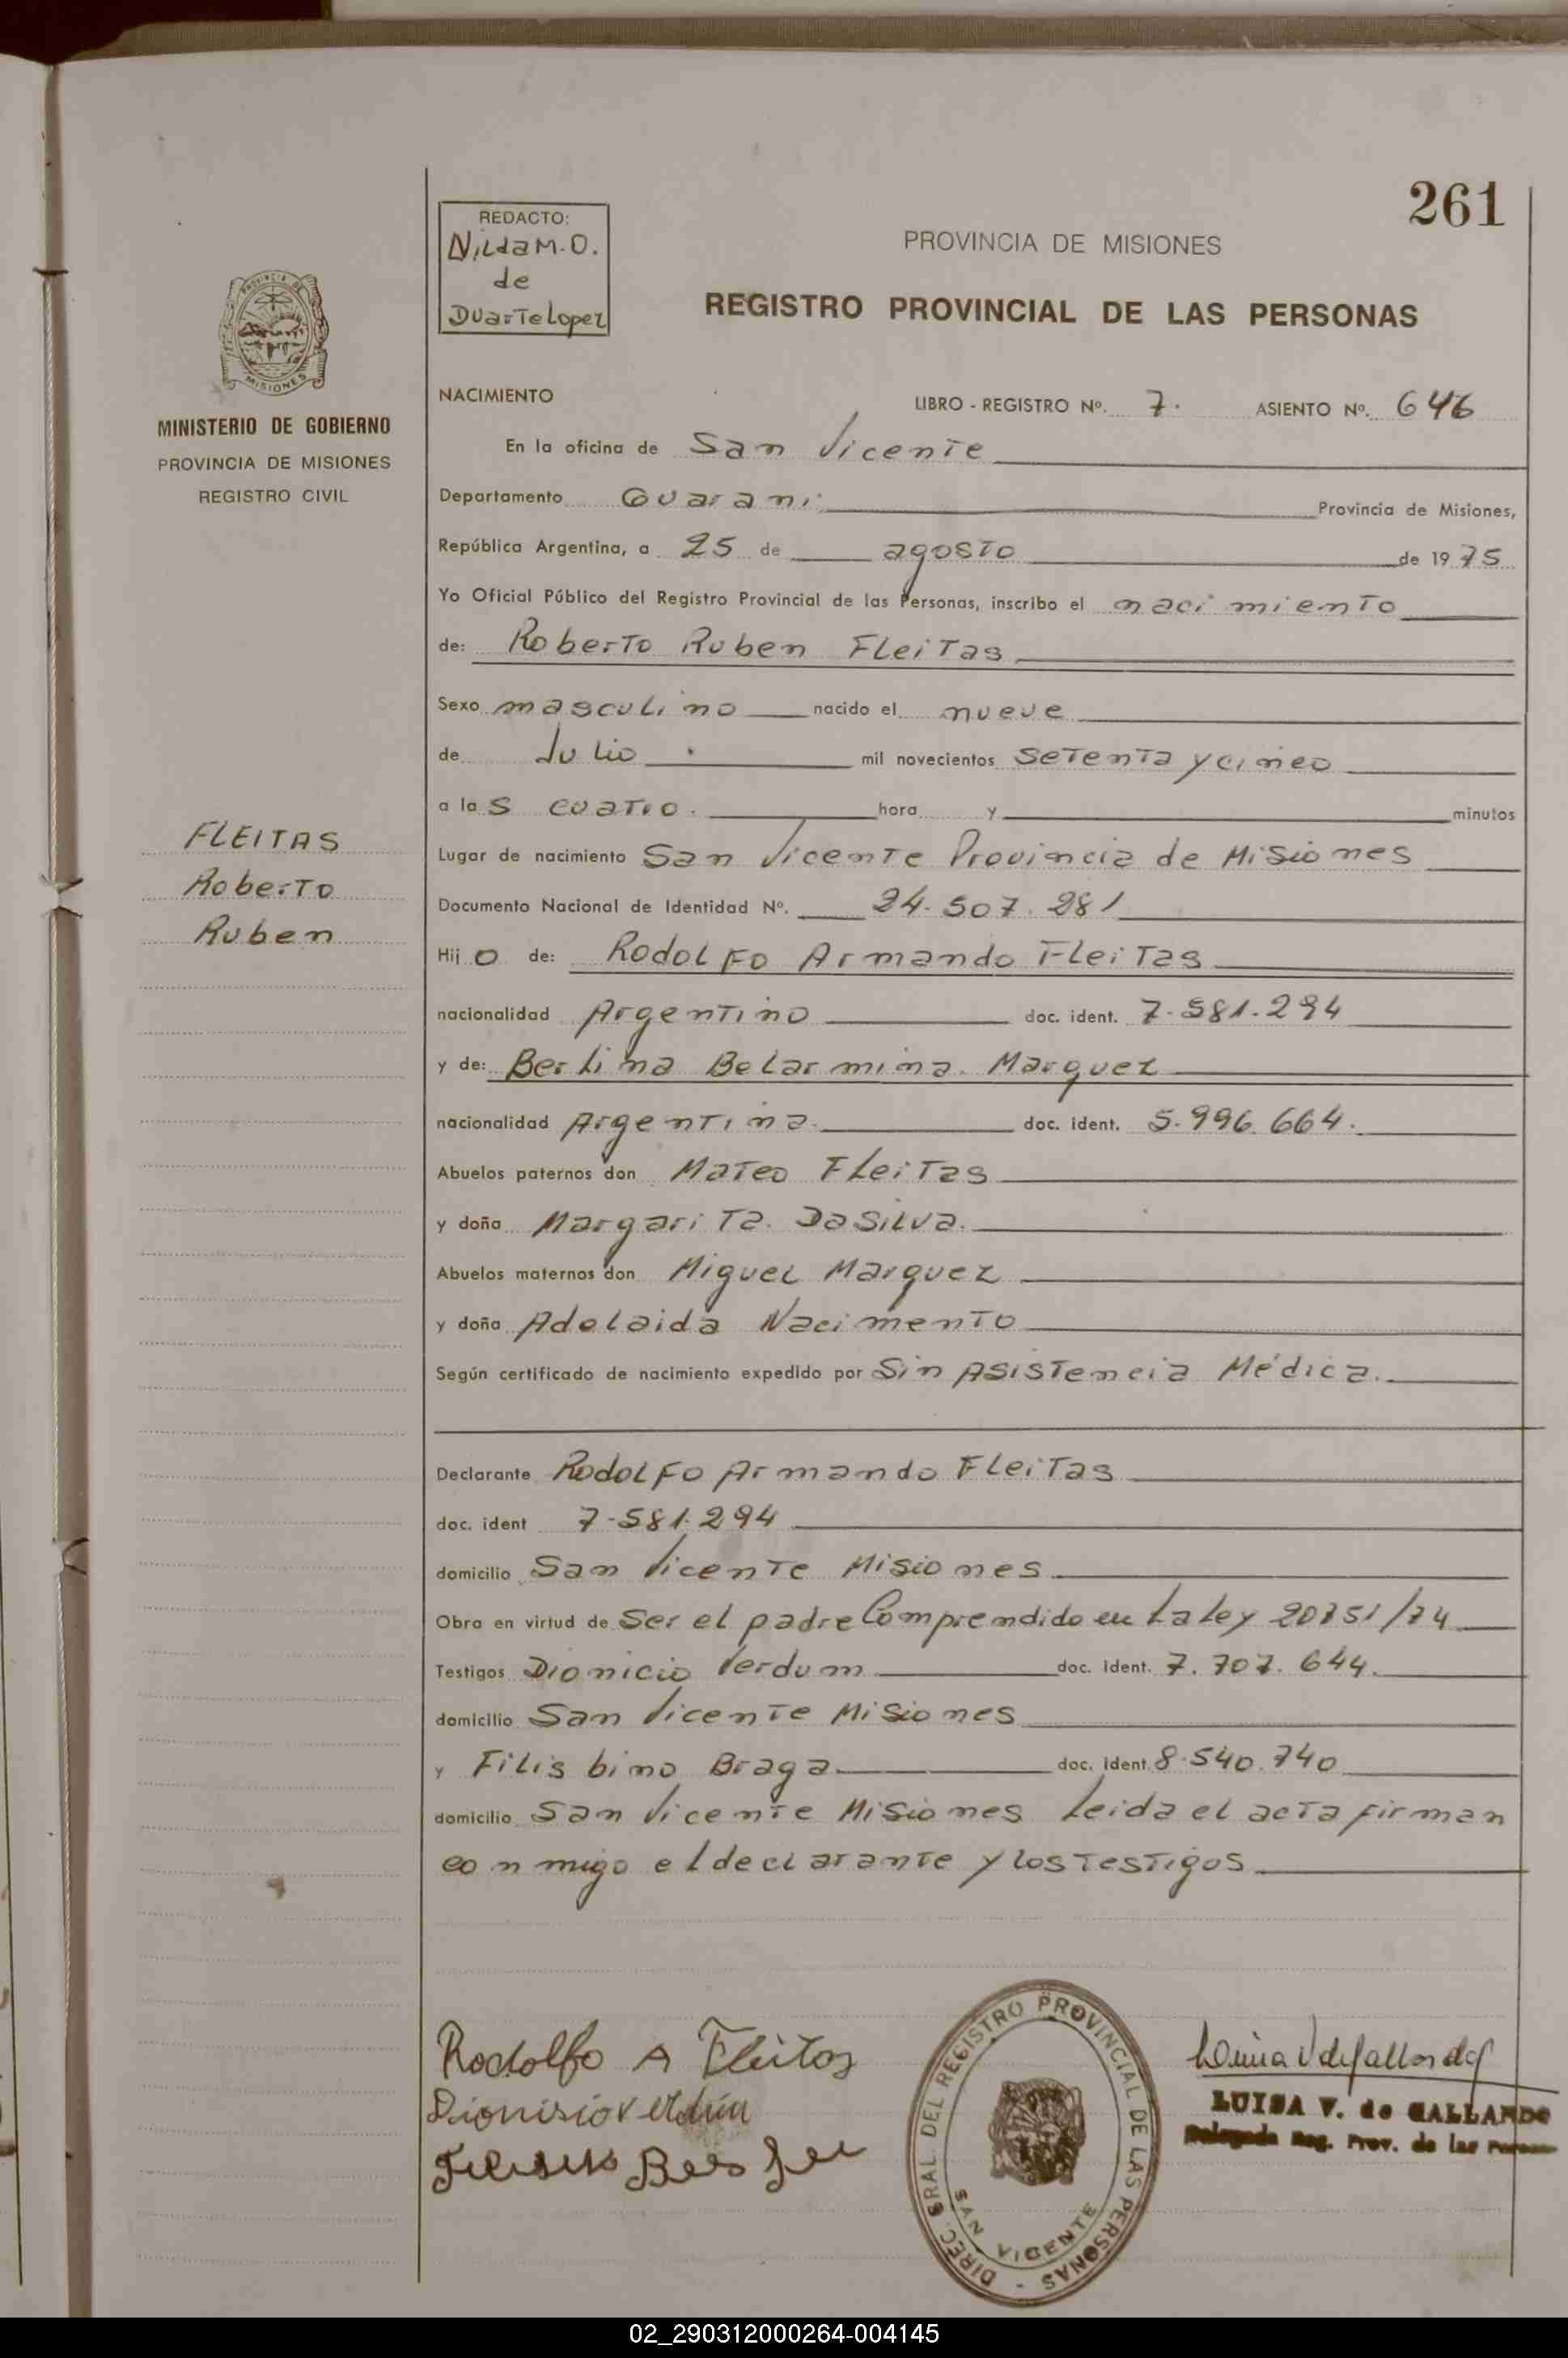 261
REDACTO:
Nilda M. O.
de
Duarte Lopez
PROVINCIA DE MISIONES
REGISTRO PROVINCIAL DE LAS PERSONAS
PROVINCIA DE
MISIONES
MINISTERIO DE GOBIERNO
PROVINCIA DE MISIONES
REGISTRO CIVIL
FLEITAS
Roberto
Ruben
NACIMIENTO LIBRO - REGISTRO Nº. 7. ASIENTO Nº. 646
En la oficina de San Vicente
Departamento Guarani Provincia de Misiones,
República Argentina, a 25 de agosto de 1975
Yo Oficial Público del Registro Provincial de las Personas, inscribo el nacimiento
de: Roberto Ruben Fleitas
Sexo masculino nacido el nueve
de Julio mil novecientos setenta y cinco
a las cuatro. hora y minutos
Lugar de nacimiento San Vicente Provincia de Misiones
Documento Nacional de Identidad Nº. 24.507.281
Hijo de: Rodolfo Armando Fleitas
nacionalidad Argentino doc. ident. 7.581.294
y de: Berlina Belarmina. Marquez
nacionalidad Argentina. doc. ident. 5.996.664.
Abuelos paternos don Mateo Fleitas
y doña Margarita. DaSilva.
Abuelos maternos don Miguel Marquez
y doña Adelaida Nacimento
Según certificado de nacimiento expedido por Sin Asistencia Médica.
Declarante Rodolfo Armando Fleitas
doc. ident 7.581.294
domicilio San Vicente Misiones
Obra en virtud de Ser el padre Comprendido en La Ley 20751/74
Testigos Dionicio Verdum doc. ident. 7.707.644.
domicilio San Vicente Misiones
y Filisbino Braga doc. ident. 8.540.740
domicilio San Vicente Misiones Leida el acta firman
conmigo el declarante y los testigos
Rodolfo A Fleitas
Dionisio Verdún
DIREC. GRAL. DEL REGISTRO PROVINCIAL DE LAS PERSONAS -
SAN VICENTE
LUISA V. de GALLARDO
Delegada Reg. Prov. de las Personas
02_290312000264-004145